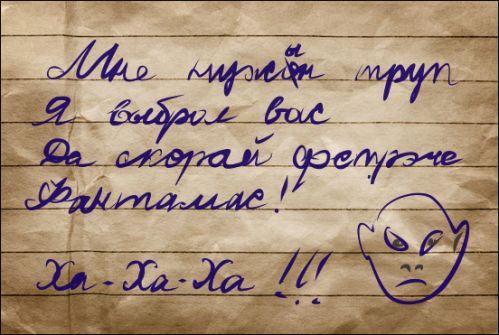 Мне нужы́н труп
Я выбрал вас
Да скорай фстрэче
Фантамас!
Ха-Ха-Ха!!!